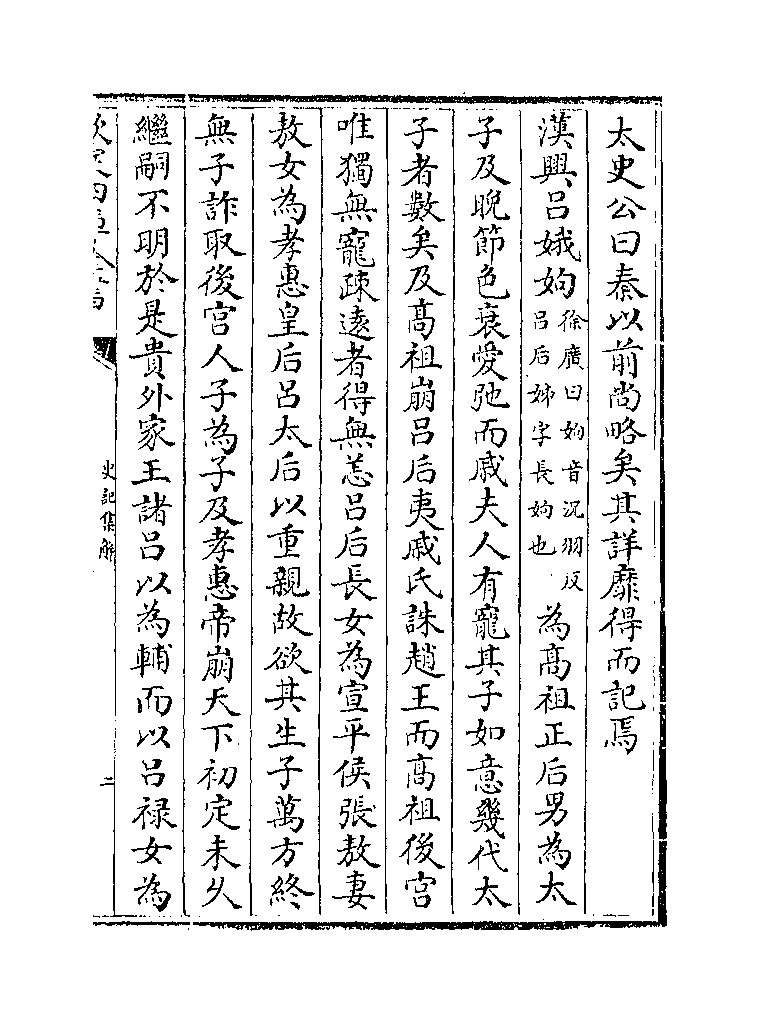 太史公曰秦以前尚略矣其詳靡得而記焉
漢興吕娥姁徐廣曰姁音况羽反吕后姊字長姁也為髙祖正后男為太
子及晚節色衰愛弛而戚夫人有寵其子如意幾代太
子者數矣及髙祖崩吕后夷戚氏誅趙王而髙祖後宫
唯獨無寵疎逺者得無恙吕后長女為宣平侯張敖妻
敖女為孝惠皇后吕太后以重親故欲其生子萬方終
無子詐取後宫人子為子及孝惠帝崩天下初定未乆
繼嗣不明於是貴外家王諸吕以為輔而以吕禄女為
史記集解
二